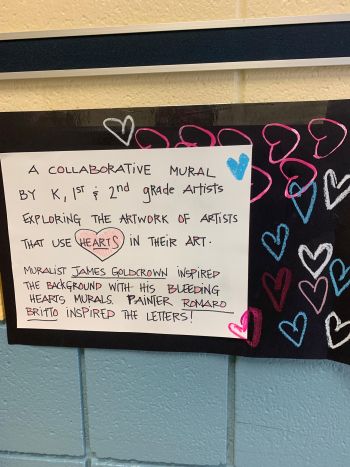 A COLLABORATIVE MURAL
BY K, 1st & 2nd grade ARTISTS
EXPLORING THE ARTWORK OF ARTISTS
THAT USE HEARTS IN THEIR ART.
MURALIST JAMES GOLDCROWN INSPIRED
THE BACKGROUND WITH HIS BLEEDING
HEARTS MURALS. PAINTER ROMARO
BRITTO INSPIRED THE LETTERS!